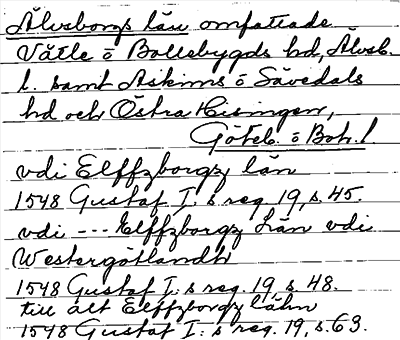 Älvsborgs län omfattade
Vätle o Bollebygds hd, Älvsb.
l. samt Askims o Sävedals
hd och Östra Hisingen,
Göteb. o Boh. l.
vdi Elffzborgz län
1548 Gustaf I:s reg. 19, s. 45.
vdi --- Elffzborgz Län vdi
Westergötlandh
1548 Gustaf I:s reg. 19 s. 48.
till alt Elffzborgz lähn
1548 Gustaf I:s reg. 19, s. 63.